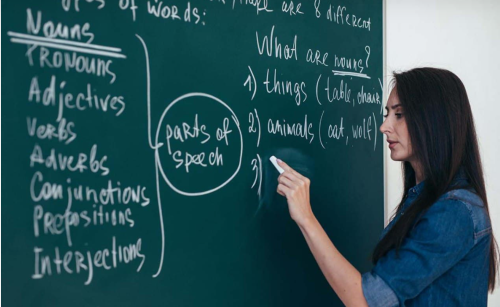 types of words:
there are 8 different
Nouns
Pronouns
Adjectives
Verbs
Adverbs
Conjunctions
Prepositions
Interjections
parts of
speech
What are nouns?
1) things (table,
2) animals (cat, wolf)
3)